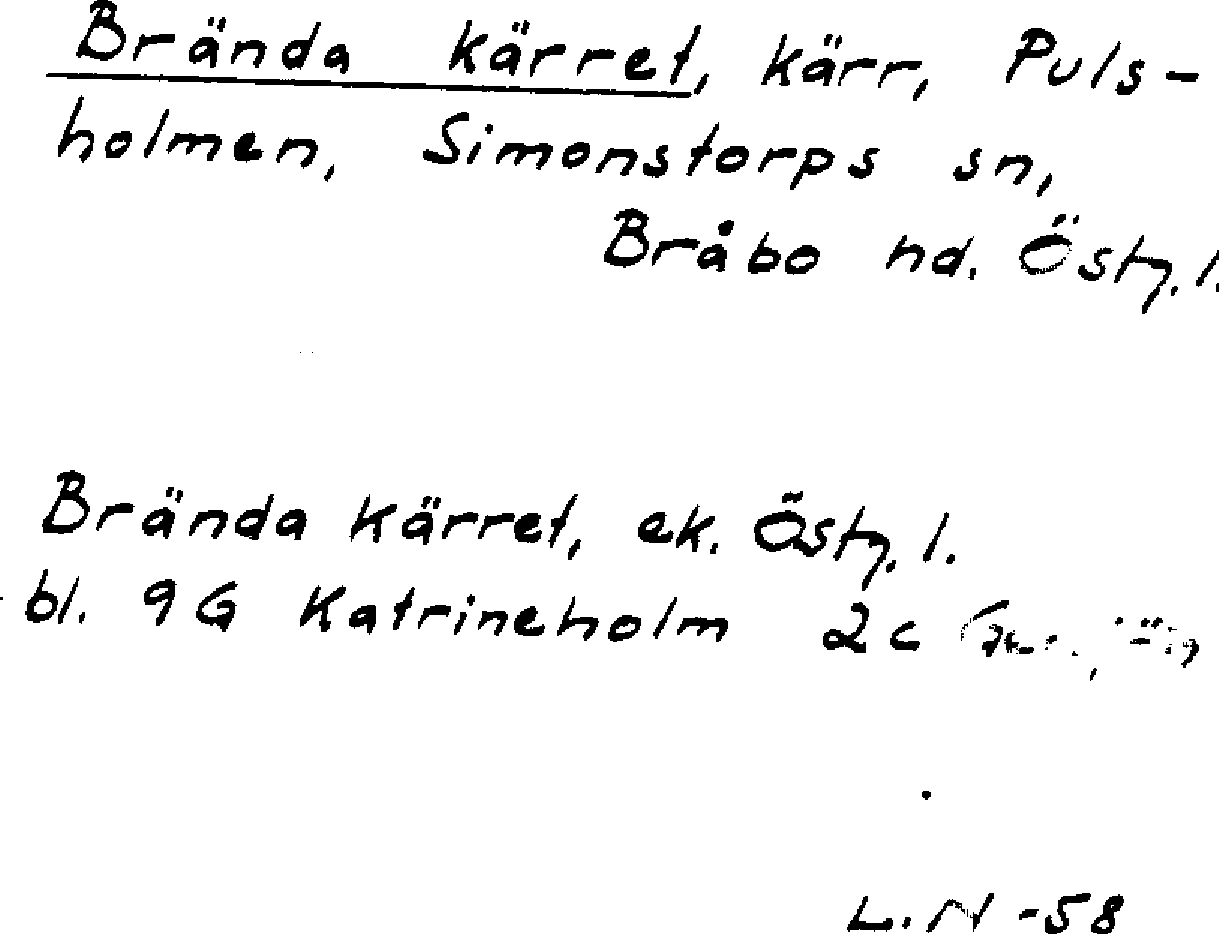 Brända kärret, kärr, Puls-
holmen, Simonstorps sn,
Bråbo hd. Östg. l.
Brända kärret, ek. Östg. l.
bl. 9G Katrineholm 2c
L. N -58